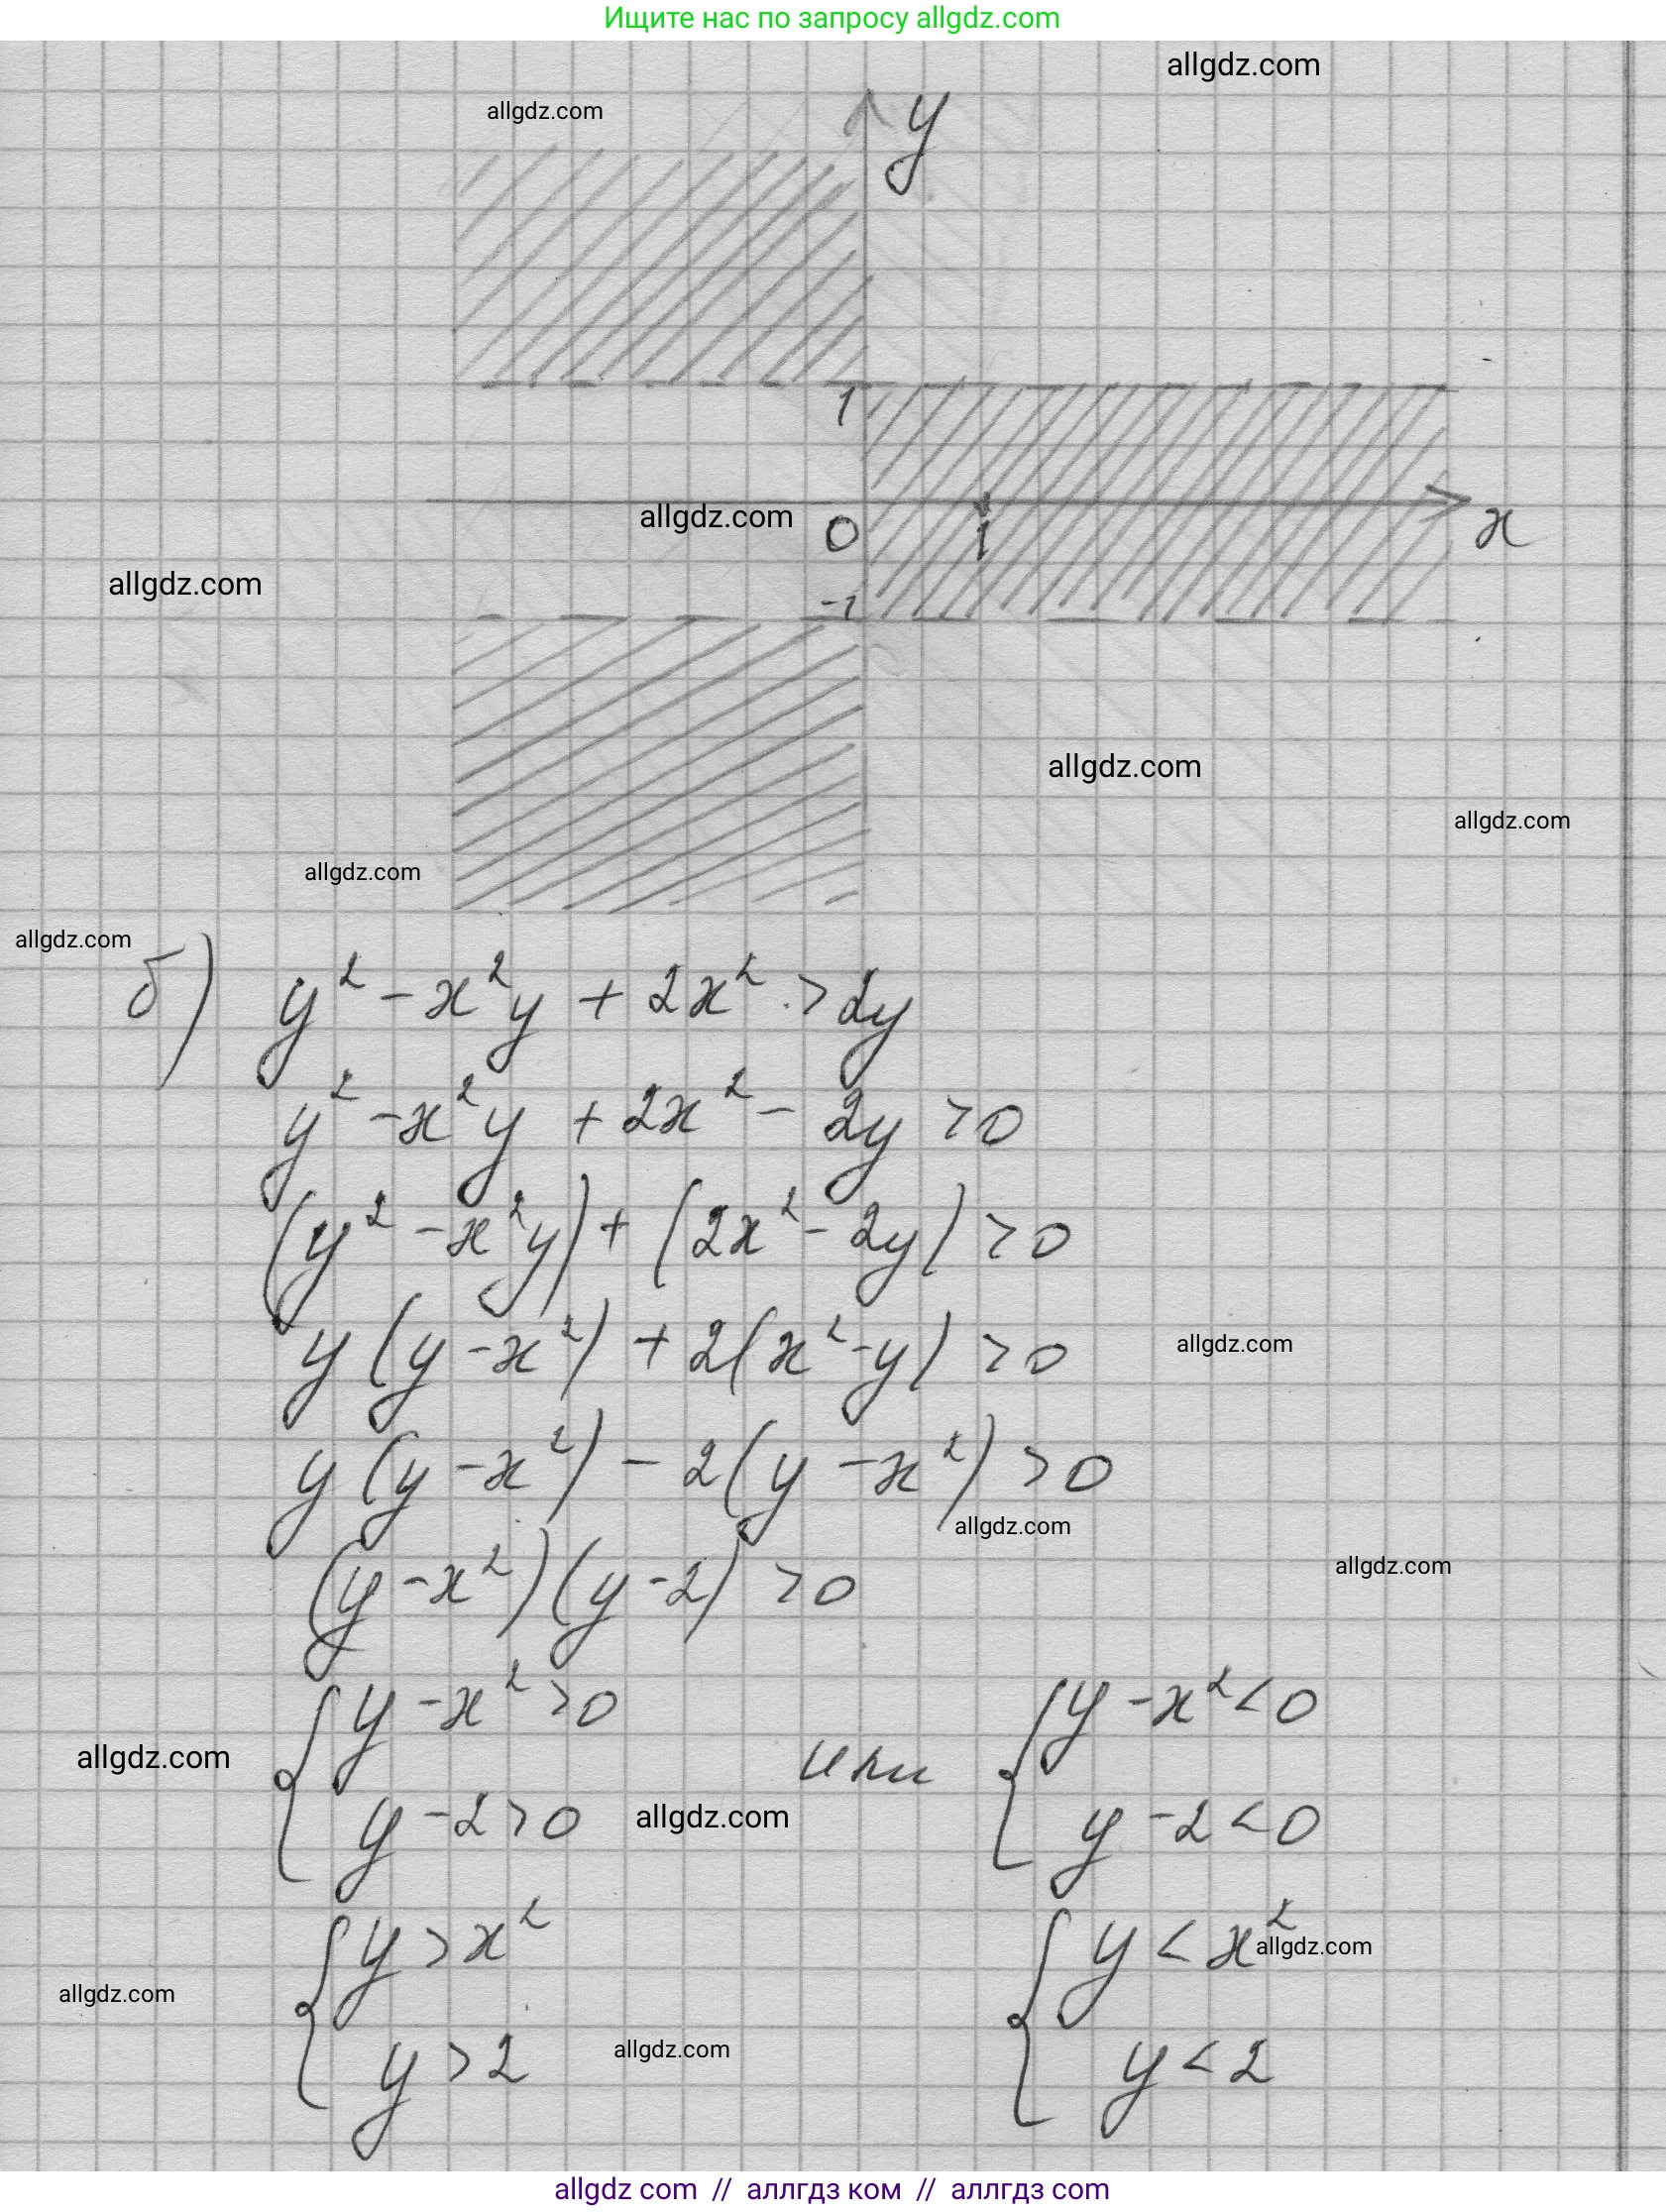 Ищите нас по запросу allgdz.com
allgdz.com
allgdz.com
y
1
allgdz.com
0
1
x
allgdz.com
-1
allgdz.com
allgdz.com
allgdz.com
allgdz.com
б) y² - x²y + 2x² > 2y
y² - x²y + 2x² - 2y > 0
(y² - x²y) + (2x² - 2y) > 0
y(y - x²) + 2(x² - y) > 0
allgdz.com
y(y - x²) - 2(y - x²) > 0
allgdz.com
allgdz.com
(y - x²)(y - 2) > 0
{ y - x² > 0 или { y - x² < 0
allgdz.com
y - 2 > 0 allgdz.com y - 2 < 0
{ y > x² { y < x² allgdz.com
allgdz.com
y > 2 allgdz.com y < 2
allgdz com // аллгдз ком // аллгдз com